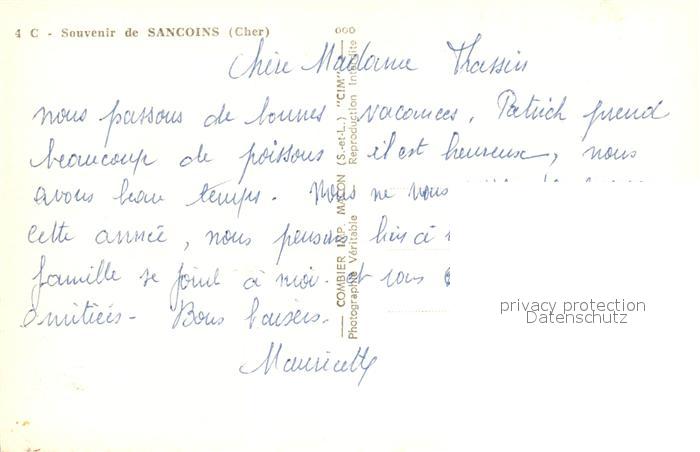 4 C - Souvenir de SANCOINS (Cher)
Chère Madame Thassin
nous passons de bonnes vacances, Patrick prend
beaucoup de poissons il est heureux, nous
avons beau temps. Nous ne vous
cette année, nous pensons bien à
famille se joint à moi. et vous
amitiés - Bons baisers.
Mauricette
COMBIER IMP. MACON (S.-et-L.) "CIM"
Photographie Véritable Reproduction Interdite
privacy protection
Datenschutz